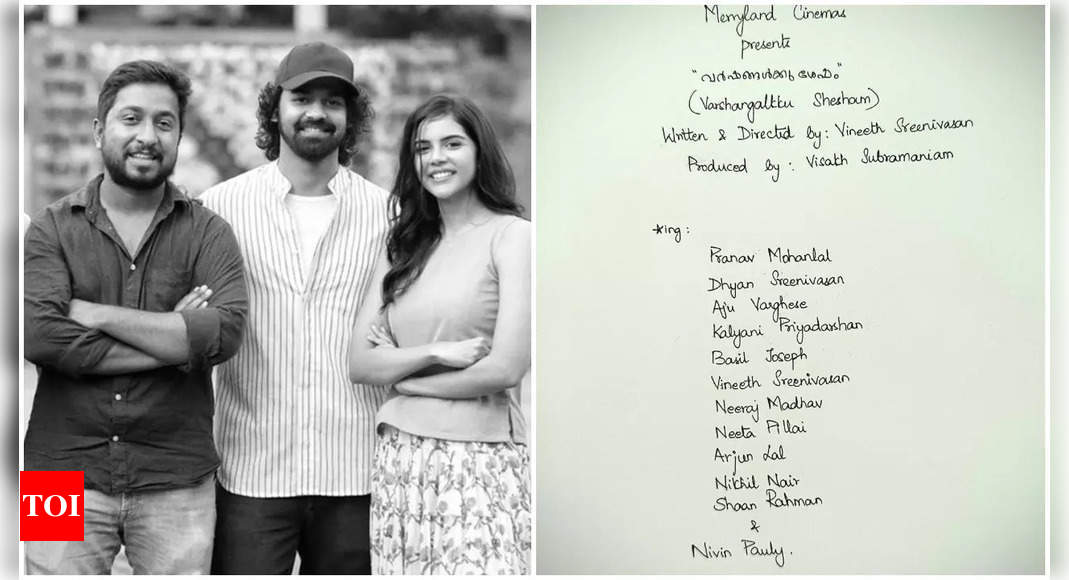 TOI
Merryland Cinemas
presents
"വർഷങ്ങൾക്കു ശേഷം"
(Varshangalkku Shesham)
Written & Directed by: Vineeth Sreenivasan
Produced by: Visakh Subramaniam
*ing:
Pranav Mohanlal
Dhyan Sreenivasan
Aju Varghese
Kalyani Priyadarshan
Basil Joseph
Vineeth Sreenivasan
Neeraj Madhav
Neeta Pillai
Arjun Lal
Nikhil Nair
Shaan Rahman
&
Nivin Pauly.